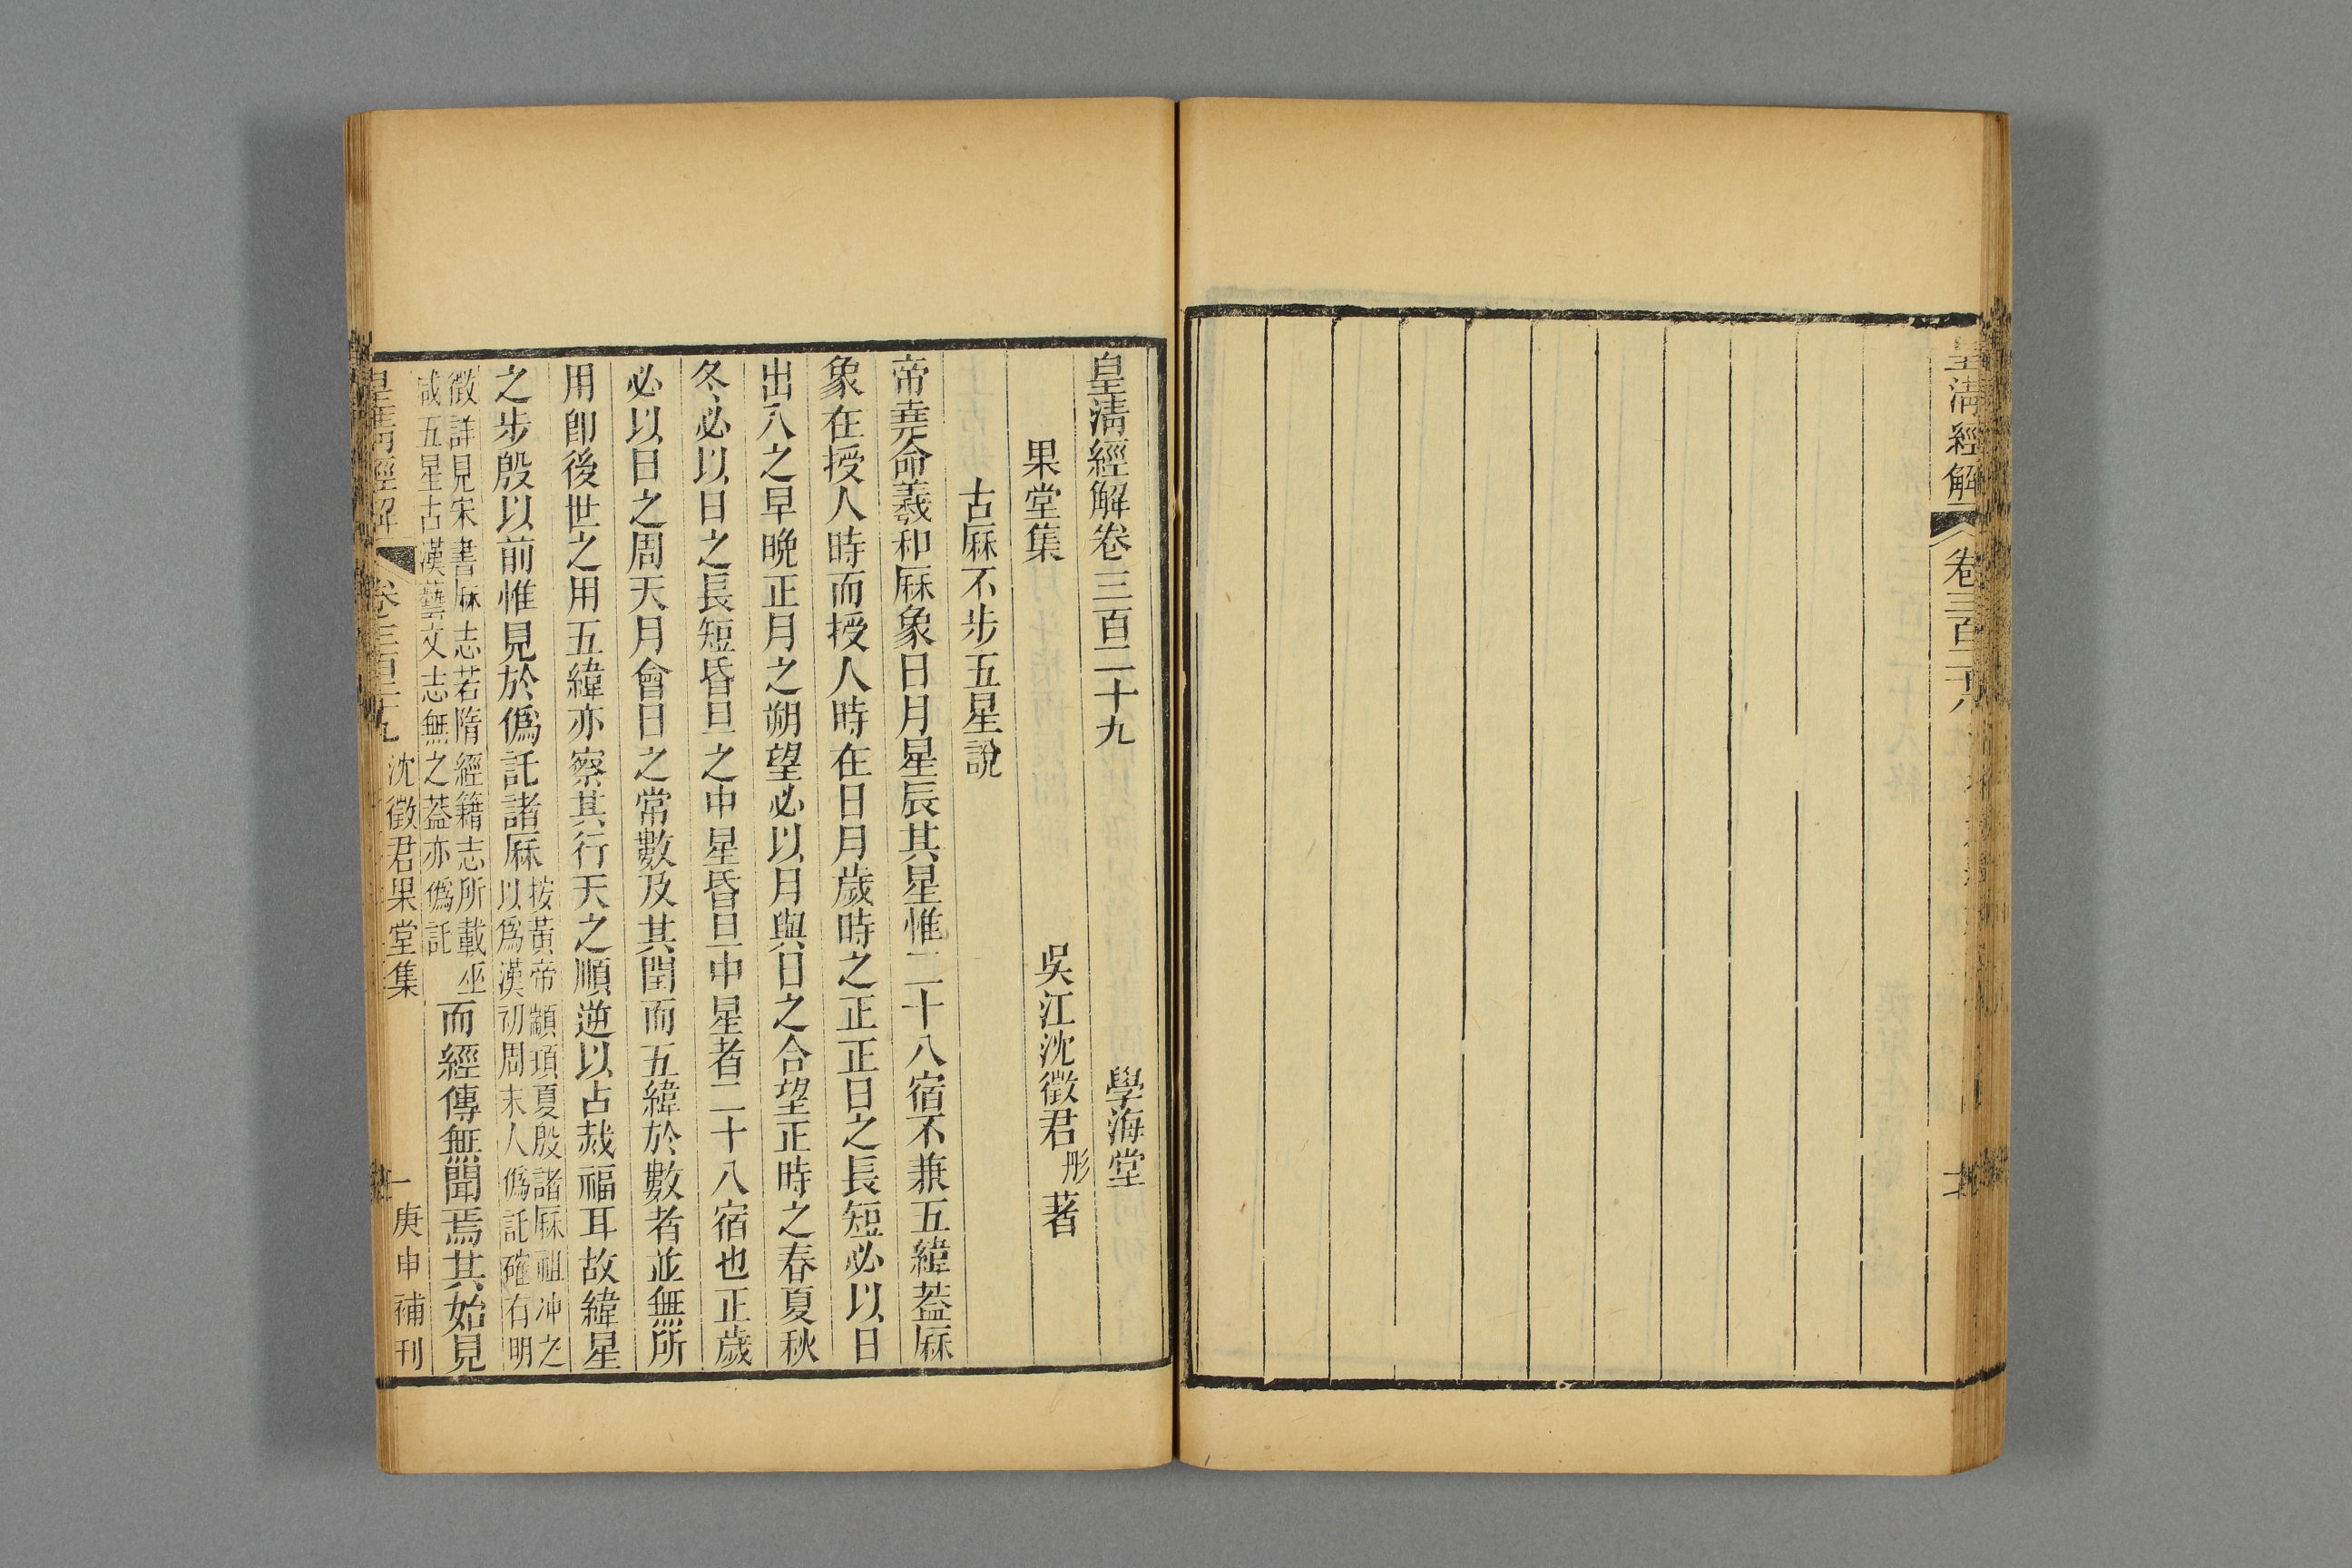 皇清經解 卷三百二十八
皇清經解卷三百二十九 學海堂
果堂集 吳江沈徵君彤著
古厤不步五星說
帝堯命羲和厤象日月星辰其星惟二十八宿不兼五緯葢厤
象在授人時而授人時在日月歲時之正正日之長短必以日
出入之早晚正月之朔望必以月與日之合望正時之春夏秋
冬必以日之長短昏旦之中星昏旦中星者二十八宿也正歲
必以日之周天月會日之常數及其閏而五緯於數者並無所
用卽後世之用五緯亦察其行天之順逆以占烖福耳故緯星
之步殷以前惟見於僞託諸厤按黃帝顓頊夏殷諸厤祖冲之
以爲漢初周末人僞託確有明
徵詳見宋書厤志若隋經籍志所載巫
咸五星占漢藝文志無之葢亦僞託而經傳無聞焉其始見
皇清經解 卷三百二十九 沈徵君果堂集 一 庚申補刊